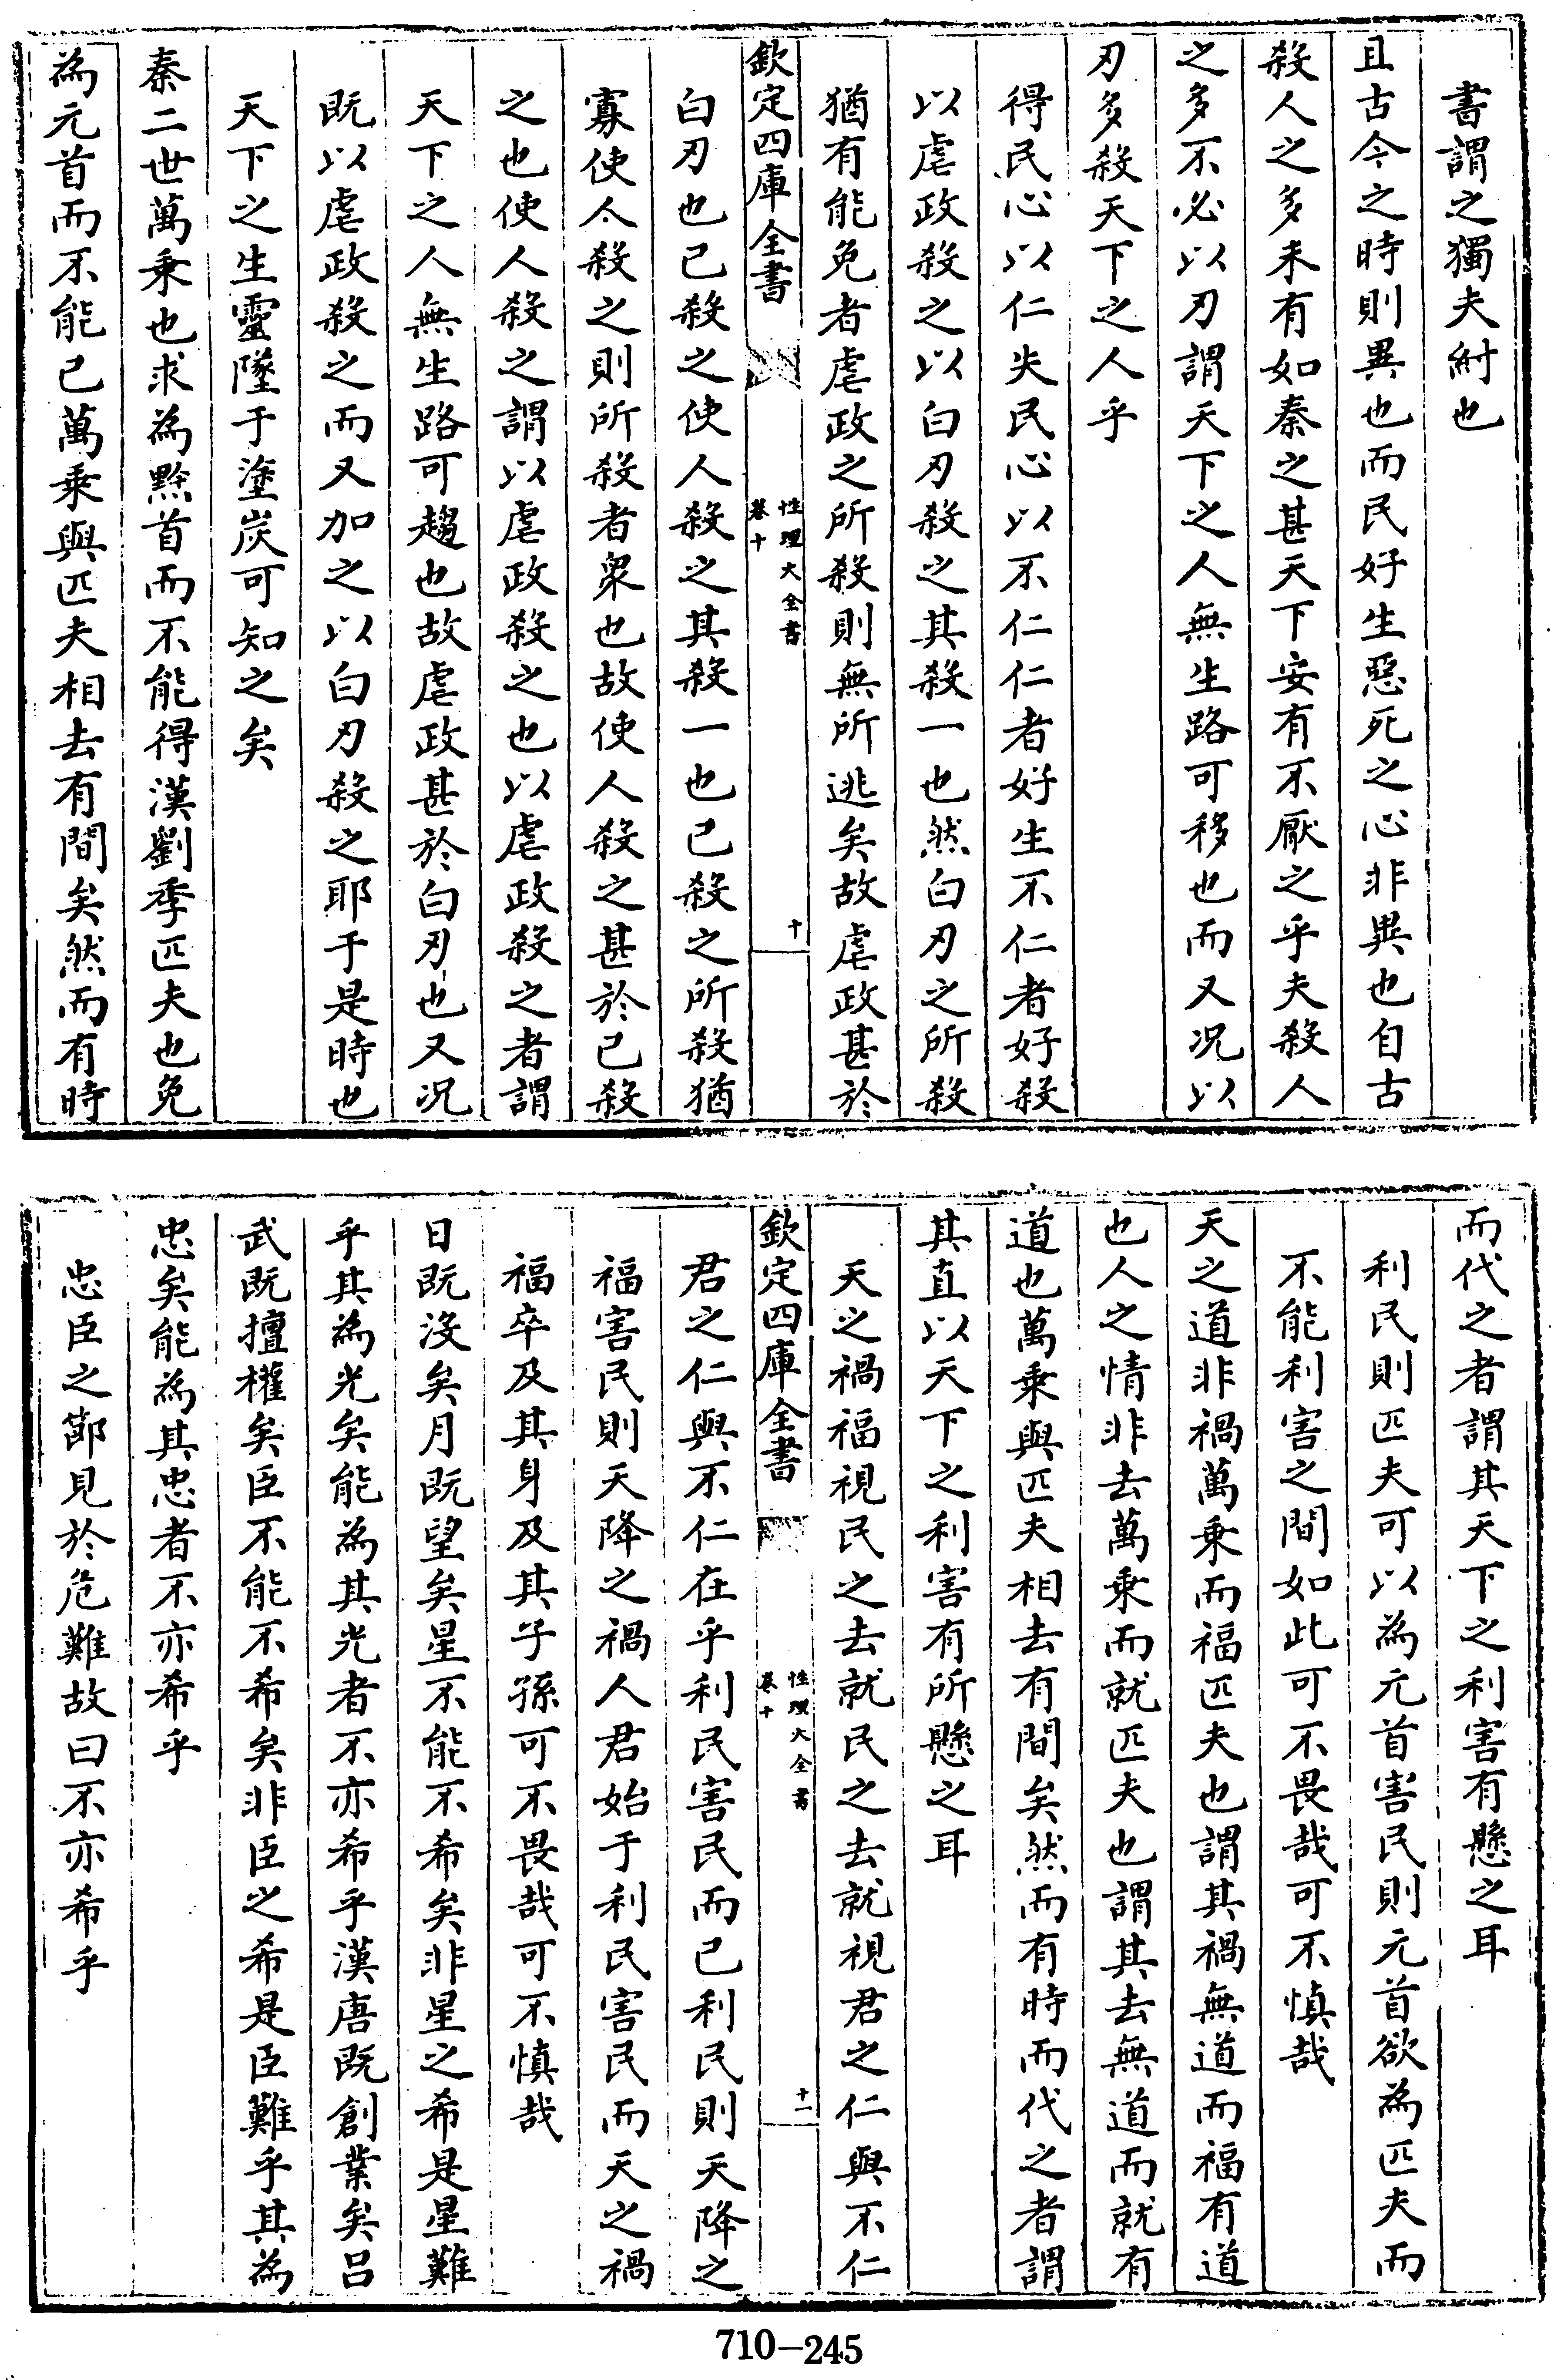 書謂之獨夫紂也
且古今之時則異也而民好生惡死之心非異也自古
殺人之多未有如秦之甚天下安有不厭之乎夫殺人
之多不必以刃謂天下之人無生路可移也而又况以
刃多殺天下之人乎
得民心以仁失民心以不仁仁者好生不仁者好殺
以虐政殺之以白刃殺之其殺一也然白刃之所殺
猶有能免者虐政之所殺則無所逃矣故虐政甚於
欽定四庫全書
性理大全書
卷十
十
白刃也已殺之使人殺之其殺一也已殺之所殺猶
寡使人殺之則所殺者衆也故使人殺之甚於已殺
之也使人殺之謂以虐政殺之也以虐政殺之者謂
天下之人無生路可趨也故虐政甚於白刃也又况
既以虐政殺之而又加之以白刃殺之耶于是時也
天下之生靈墜于塗炭可知之矣
秦二世萬乘也求為黔首而不能得漢劉季匹夫也免
為元首而不能已萬乘與匹夫相去有間矣然而有時
而代之者謂其天下之利害有懸之耳
利民則匹夫可以為元首害民則元首欲為匹夫而
不能利害之間如此可不畏哉可不慎哉
天之道非禍萬乘而福匹夫也謂其禍無道而福有道
也人之情非去萬乘而就匹夫也謂其去無道而就有
道也萬乘與匹夫相去有間矣然而有時而代之者謂
其直以天下之利害有所懸之耳
天之禍福視民之去就民之去就視君之仁與不仁
欽定四庫全書
性理大全書
卷十
十一
君之仁與不仁在乎利民害民而已利民則天降之
福害民則天降之禍人君始于利民害民而天之禍
福卒及其身及其子孫可不畏哉可不慎哉
日既沒矣月既望矣星不能不希矣非星之希是星難
乎其為光矣能為其光者不亦希乎漢唐既創業矣呂
武既擅權矣臣不能不希矣非臣之希是臣難乎其為
忠矣能為其忠者不亦希乎
忠臣之節見於危難故曰不亦希乎
710-245